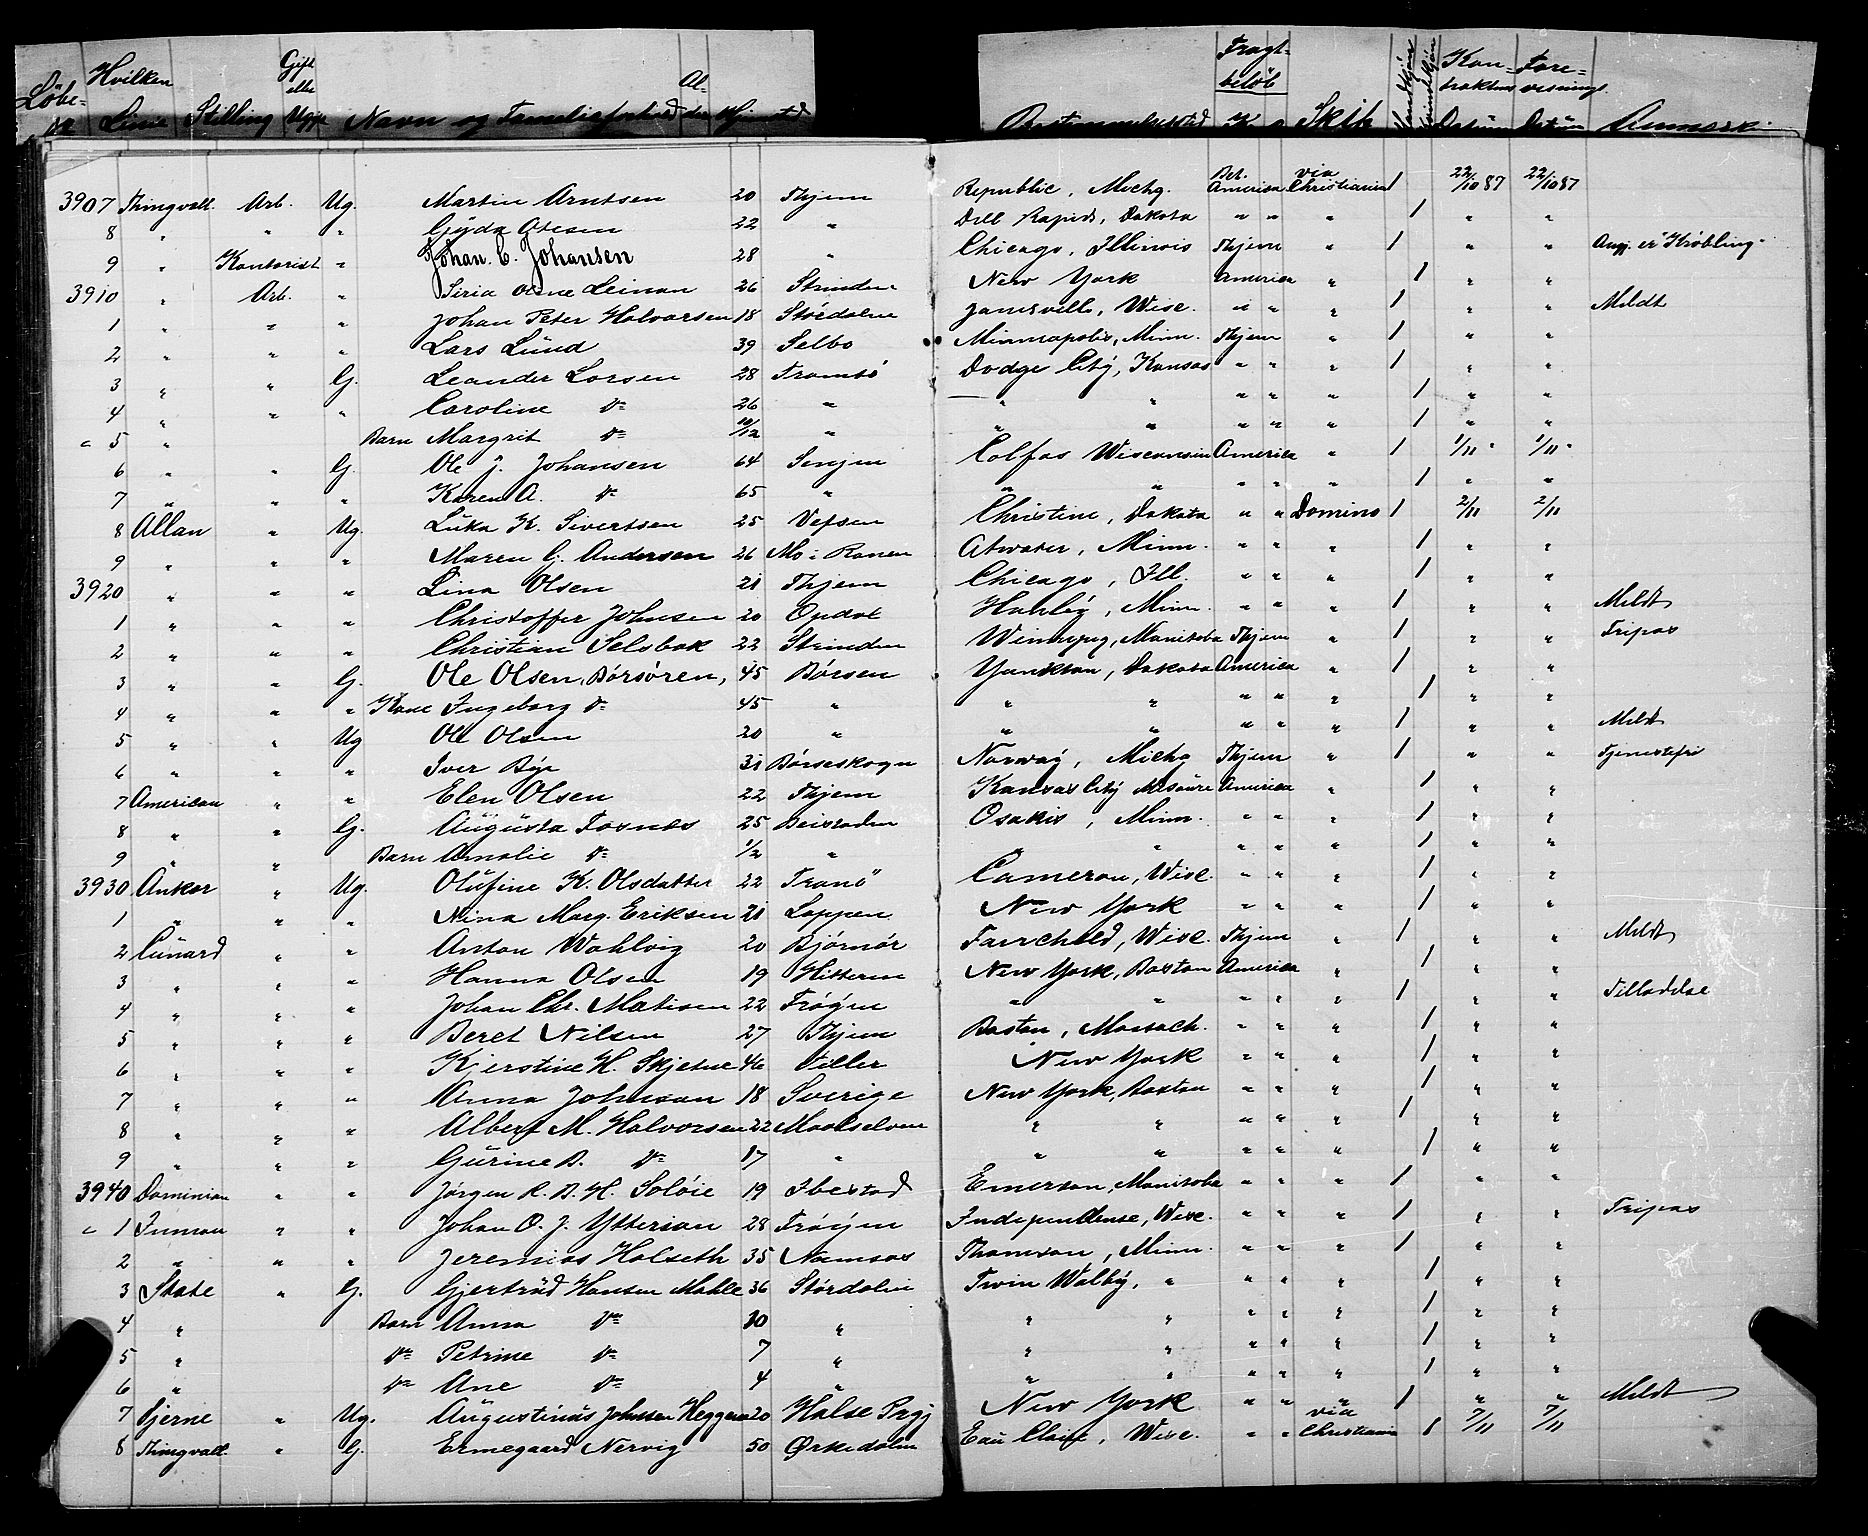 Löbe- Hvilken Linie Stilling Gift eller Ugift Navn og Familieforhold Al- der Hjemsted Bestemmelsessted Fragt- beløb Skib Mandkjøn Kvindekjøn Kon- trakten Datum Fore- visnings Datum Anmærk.
3907 Thingvall. Arb. Ug. Martin Arntsen 20 Thjem Republic, Michg. Bet. America via Christiania 1 22/10 87 22/10 87
8 " " " Gyda Olesen 22 " Dell Rapids, Dakota " " " 1 " "
9 " Kontorist " Johan. C. Johansen 28 " Chicago, Illinois Thjem " 1 " "
3910 " Arb. " Siria Leinan 26 Strinden New York America " 1 " "
1 " " " Johan Peter Halvorsen 18 Stördalen Janesville, Wisc. " " " 1 " " Meldt
2 " " " Lars Lund 39 Selbo Minneapolis, Minn. Thjem " 1 " "
3 " " G. Leander Larsen 28 Tromsö Dodge City, Kansas " " " 1 " "
4 " " " Caroline Do 26 " " " " " " 1 " "
5 " Barn Margrit Do 10/12 " " " " " " 1 " "
6 " " G. Ole J. Johansen 64 Senjen Colfax Wisconsin America " 1 1/11 " 1/11 "
7 " " " Karen A. Do 65 " " " " " " 1 " "
8 Allan " Ug. Luka K. Sivertsen 25 Vefsen Christine, Dakota " " Domino 1 2/11 2/11
9 " " " Maren G. Andersen 26 Mo i Ranen Atwater, Minn. " " " 1 " "
3920 " " " Lina Olsen 21 Thjem Chicago, Ill. " " " 1 " "
1 " " " Christoffer Johnsen 20 Opdal Hanley, Minn. " " " 1 " " Meldt
2 " " " Christian Selsbak 22 Strinden Winnipeg, Manitoba Thjem " 1 " " Fripas
3 " " G. Ole Olsen, Börsören, 45 Börsen Yankton, Dakota America " 1 " "
4 " " " Kone Ingeborg Do 45 " " " " " " 1 " "
5 " " Ug Ole Olsen 20 " " " " " " 1 " " Meldt
6 " " " Iver Bye 31 Börseskogn Norway, Michg Thjem " 1 " " Tjenestefri
7 American " " Elen Olsen 22 Thjem Kansas City America " 1 " "
8 " " G. Augusta Fosnes 25 Beitstaden Osakis, Minn. " " " 1 " "
9 " " Barn Amalie Do 1/2 " " " " " " 1 " "
3930 Anker " Ug. Olufine K. Olsdatter 22 Tranö Cameron, Wisc. " " " 1 " "
1 " " " Nina Marg. Eriksen 21 Loppen New York " " " 1 " "
2 Cunard " " Anton Wahlvig 20 Björnör Fairchild, Wisc. Thjem " 1 " " Meldt
3 " " " Hanna Olsen 19 Hitteren New York, Boston America " 1 " "
4 " " " Johan Chr. Matisen 22 Fröyen " " " " " 1 " " Tilladelse
5 " " " Beret Nilsen 27 Thjem Boston, Massach. " " " 1 " "
6 " " " Kjerstine H. Skjetne 46 Tiller New York " " " 1 " "
7 " " " Anna Johnson 18 Sverige New York, Boston " " " 1 " "
8 " " " Albert M. Halvorsen 22 Maalselven " " " " " 1 " "
9 " " " Gurine B. Do 17 " " " " " " 1 " "
3940 Dominian " " Jörgen R. B. H. Solöie 19 Ibestad Emerson, Manitoba " " " 1 " "
1 Inman " " Johan O. J. Ytterian 28 Fröyen Independense, Wisc. " " " 1 " " Fripas
2 " " " Jeremias Halseth 35 Namsos Thomson, Minn. " " " 1 " "
3 State " G. Gjertrud Hansen Mahle 36 Stördalen Twin Walby, " " " " 1 " "
4 " Barn Anna Do 10 " " " " " " 1 " "
5 " Do Petrine Do 7 " " " " " " 1 " "
6 " Do Ane Do 4 " " " " " " 1 " "
7 Bjerne " Ug. Augustinus Johnsen Heggem 20 Halse New York " " " 1 " " Meldt
8 Thingvall. " G. Ermegaard Nervig 50 Ørkedalen Eau Claire, Wisc. " " via Christiania 1 7/11 7/11